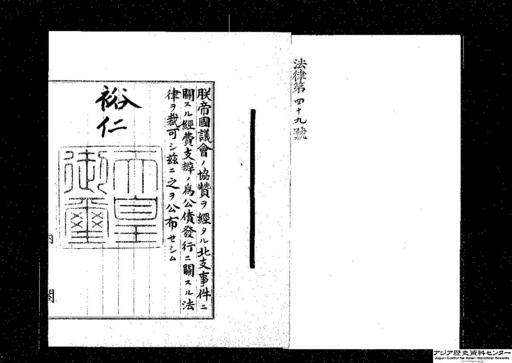 法律第四十九號
朕帝國議會ノ協贊ヲ經タル北支事件ニ
關スル經費支辨ノ爲公債發行ニ關スル法
律ヲ裁可シ茲ニ之ヲ公布セシム
裕仁
天皇
御璽
内閣
アジア歴史資料センター
Japan Center for Asian Historical Records